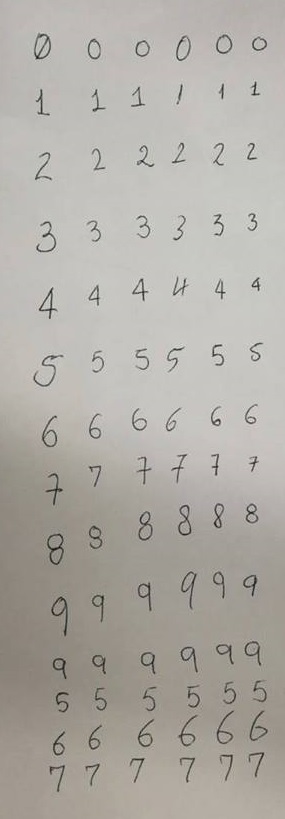 0 0 0 0 0 0
1 1 1 1 1 1
2 2 2 2 2 2
3 3 3 3 3 3
4 4 4 4 4 4
5 5 5 5 5 5
6 6 6 6 6 6
7 7 7 7 7 7
8 8 8 8 8 8
9 9 9 9 9 9
9 9 9 9 9 9
5 5 5 5 5 5
6 6 6 6 6 6
7 7 7 7 7 7